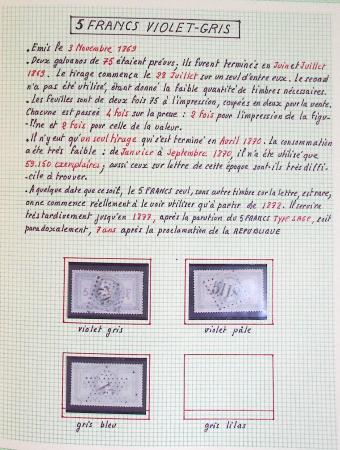 5 FRANCS VIOLET-GRIS
. Emis le 3 Novembre 1869
. Deux galvanos de 75 étaient prévus; Ils furent terminés en Juin et Juillet
1869. Le tirage commença le 28 Juillet sur un seul d'entre eux. Le second
n'a pas été utilisé, étant donné la faible quantité de timbres nécessaires.
. Les feuilles sont de deux fois 75 à l'impression, coupées en deux pour la vente.
Chacune est passée 4 fois sur la presse : 2 fois pour l'impression de la figu-
-Une et 2 fois pour celle de la valeur.
. Il n'y eut qu'un seul tirage qui s'est terminé en Avril 1870. La consommation
a été très faible : de Janvier à Septembre 1870, il n'a été utilisé que
59.150 exemplaires; aussi ceux sur lettre de cette époque sont-ils très diffi-
cile à trouver.
. A quelque date que ce soit, le 5 FRANCS seul, sans autre timbre sur la lettre, est rare,
on ne commence réellement à le voir utiliser qu'à partir de 1872. Il servira
très tardivement jusqu'en 1877, après la parution du 5 FRANCS TYPE SAGE, soit
paradoxalement, 7 ans après la proclamation de la REPUBLIQUE
violet gris
violet pâle
gris bleu
gris lilas